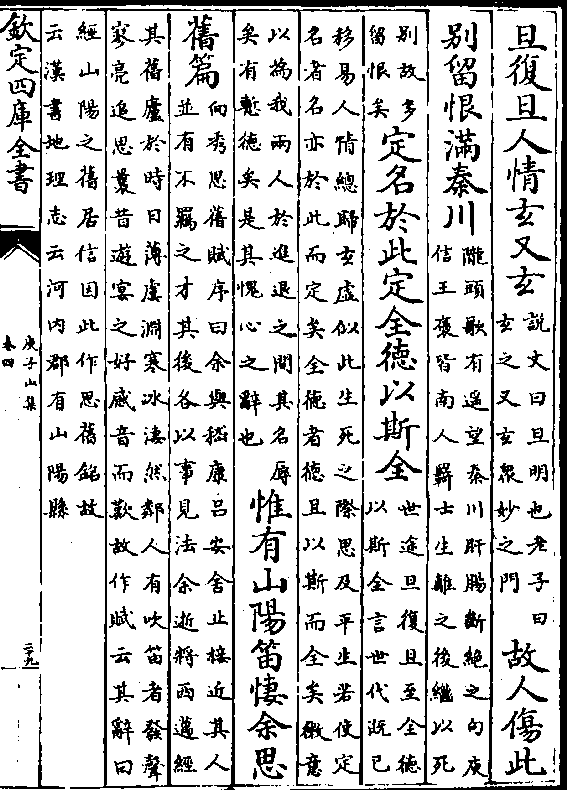 旦復旦人情玄又玄
說文曰旦明也老子曰
玄之又玄衆妙之門
故人傷此
別留恨滿秦川
隴頭歌有遥望秦川肝腸斷絶之句庾
信王襃皆南人羈士生離之後繼以死
別故多
留恨矣
定名於此定全德以斯全
世途旦復旦至全德
以斯全言世代既已
移易人情總歸玄虚似此生死之際思及平生若使定
名者名亦於此而定矣全德者德且以斯而全矣微意
以為我兩人於進退之間其名辱
矣有慙德矣是其愧心之辭也
惟有山陽笛悽余思
舊篇
向秀思舊賦序曰余與嵇康呂安舍止接近其人
並有不羈之才其後各以事見法余逝將西邁經
其舊廬於時日薄虞淵寒冰凄然鄰人有吹笛者發聲
寥亮追思曩昔遊宴之好感音而歎故作賦云其辭曰
經山陽之舊居信因此作思舊銘故
云漢書地理志云河内郡有山陽縣
欽定四庫全書
庾子山集
卷四
二十九